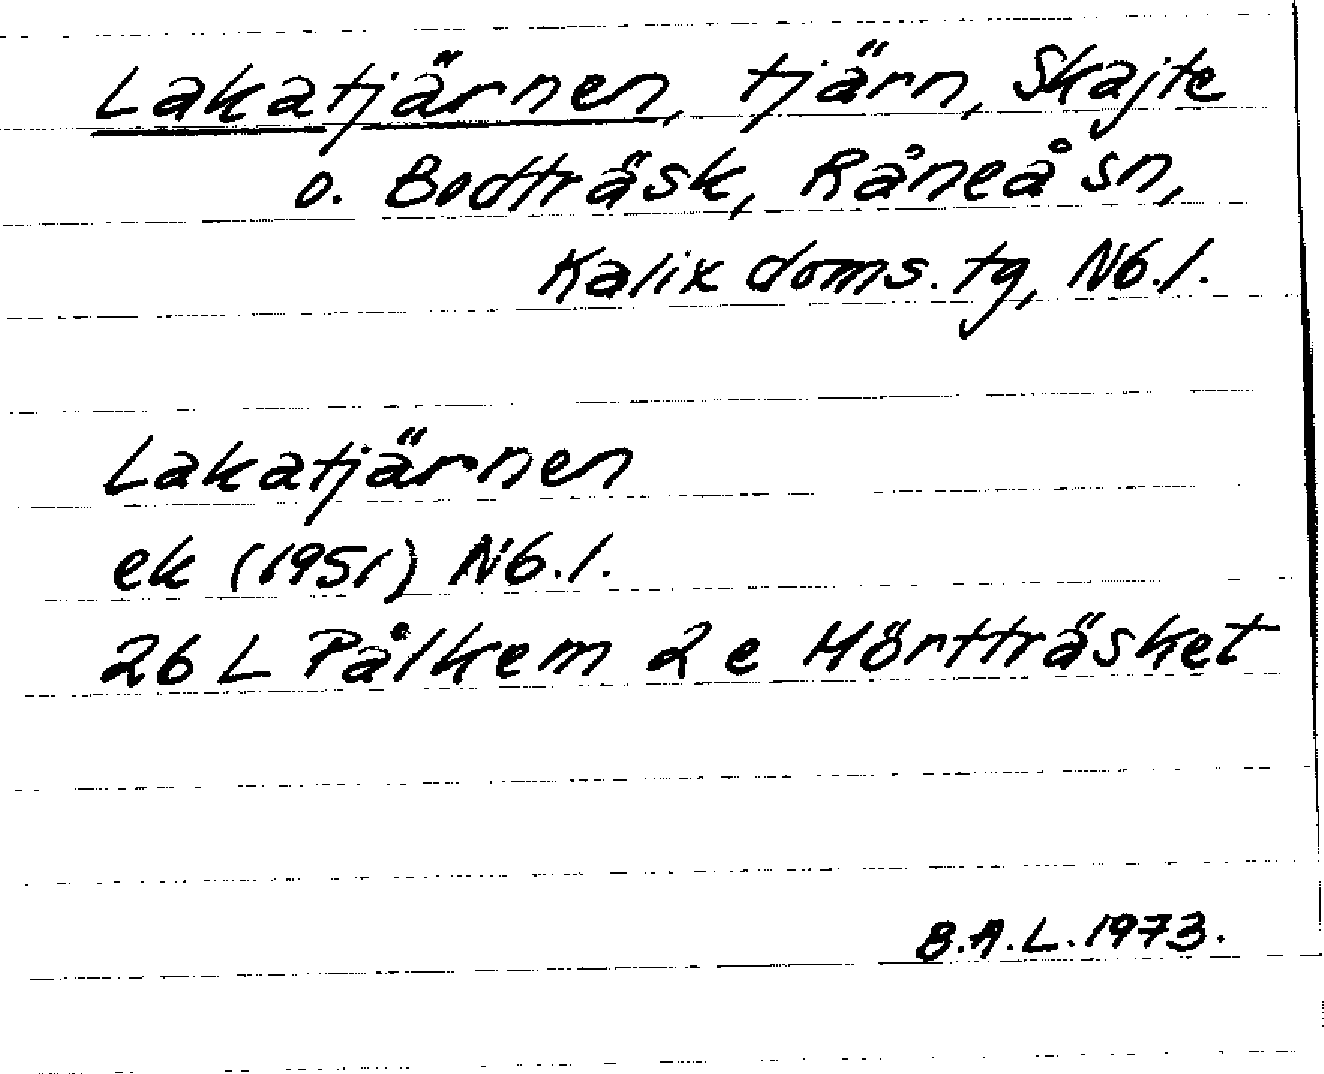 Lakatjärnen, tjärn, Skajte
o. Bodträsk, Råneå sn,
Kalix doms. tg, Nb. l.
Lakatjärnen
ek (1951) Nb. l.
26 L Pålkem 2 e Hörtträsket
B.A.L. 1973.